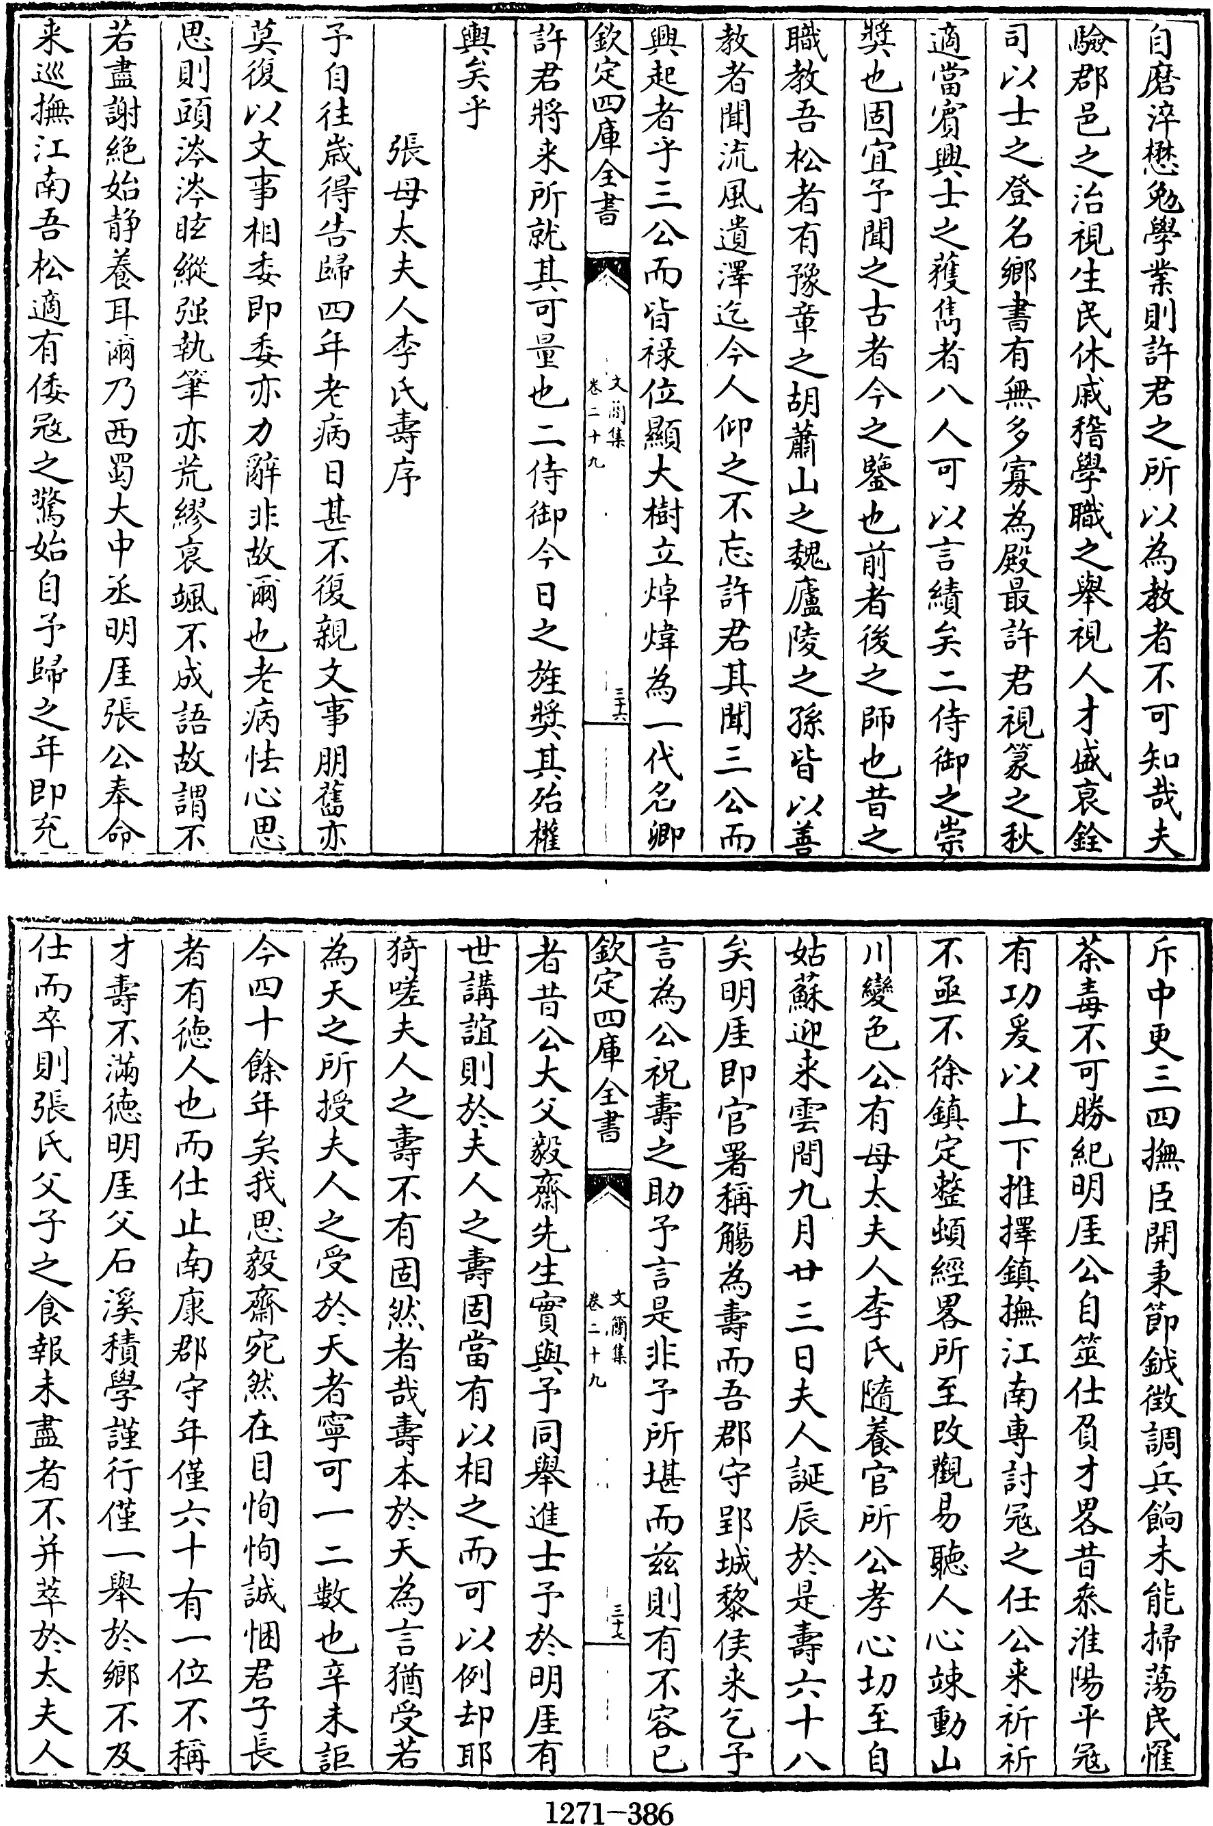 自磨淬懋勉學業則許君之所以為教者不可知哉夫
驗郡邑之治視生民休戚稽學職之舉視人才盛衰銓
司以士之登名鄉書有無多寡為殿最許君視篆之秋
適當賓興士之獲雋者八人可以言績矣二侍御之崇
奬也固宜予聞之古者今之鑒也前者後之師也昔之
職教吾松者有豫章之胡蕭山之魏廬陵之孫皆以善
教者聞流風遺澤迄今人仰之不忘許君其聞三公而
興起者乎三公而皆祿位顯大樹立焯煒為一代名卿
欽定四庫全書
文簡集
卷二十九
三十六
許君將来所就其可量也二侍御今日之旌奬其殆權
輿矣乎
張母太夫人李氏壽序
予自往歲得告歸四年老病日甚不復親文事朋舊亦
莫復以文事相委即委亦力辭非故爾也老病怯心思
思則頭涔涔眩縱强執筆亦荒繆衰颯不成語故謂不
若盡謝絶始静養耳爾乃西蜀大中丞明厓張公奉命
来巡撫江南吾松適有倭冦之驚始自予歸之年即充
斥中更三四撫臣開秉節鉞徵調兵餉未能掃蕩民罹
荼毒不可勝紀明厓公自筮仕負才畧昔叅淮陽平冦
有功爰以上下推擇鎮撫江南専討冦之任公来祈祈
不亟不徐鎮定整頓經畧所至改觀易聽人心竦動山
川變色公有母太夫人李氏隨養官所公孝心切至自
姑蘇迎来雲間九月廿三日夫人誕辰於是壽六十八
矣明厓即官署稱觴為壽而吾郡守郢城黎侯来乞予
言為公祝壽之助予言是非予所堪而兹則有不容已
欽定四庫全書
文簡集
卷二十九
三十七
者昔公大父毅齋先生實與予同舉進士予於明厓有
世講誼則於夫人之壽固當有以相之而可以例却耶
猗嗟夫人之壽不有固然者哉壽本於天為言猶受若
為天之所授夫人之受於天者寧可一二數也辛未詎
今四十餘年矣我思毅齋宛然在目恂恂誠悃君子長
者有德人也而仕止南康郡守年僅六十有一位不稱
才壽不滿德明厓父石溪積學謹行僅一舉於鄉不及
仕而卒則張氏父子之食報未盡者不并萃於太夫人
1271-386